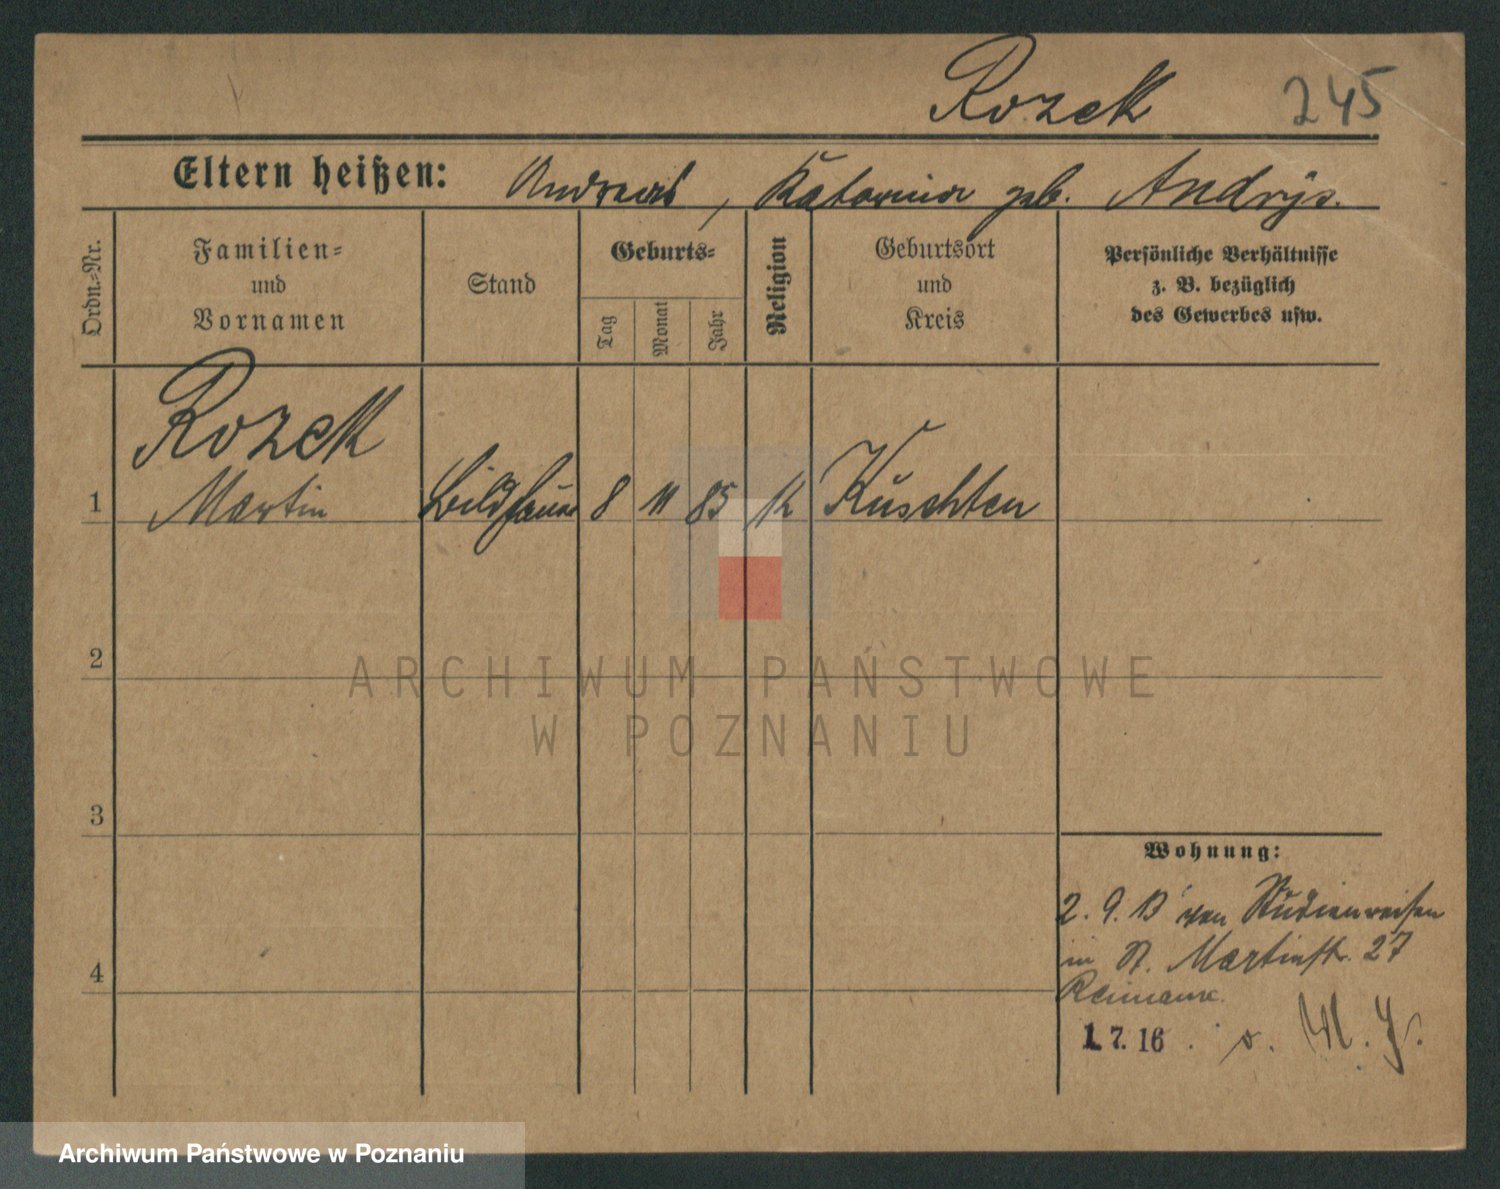 Rozek 245
Eltern heißen: Andreas, Katarina geb. Andrys.
Ordn.-Nr.
Familien-
und
Vornamen
Stand
Geburts-
Tag
Monat
Jahr
Religion
Geburtsort
und
Kreis
Persönliche Verhältnisse
z. B. bezüglich
des Gewerbes usw.
Rozek
1 Martin Bildhauer 8 11 85 K Kuschten
2
3
4
Wohnung:
2. 9. 13 von Studienreisen
in St. Martinstr. 27
1. 7. 16
ARCHIWUM PAŃSTWOWE
W POZNANIU
Archiwum Państwowe w Poznaniu